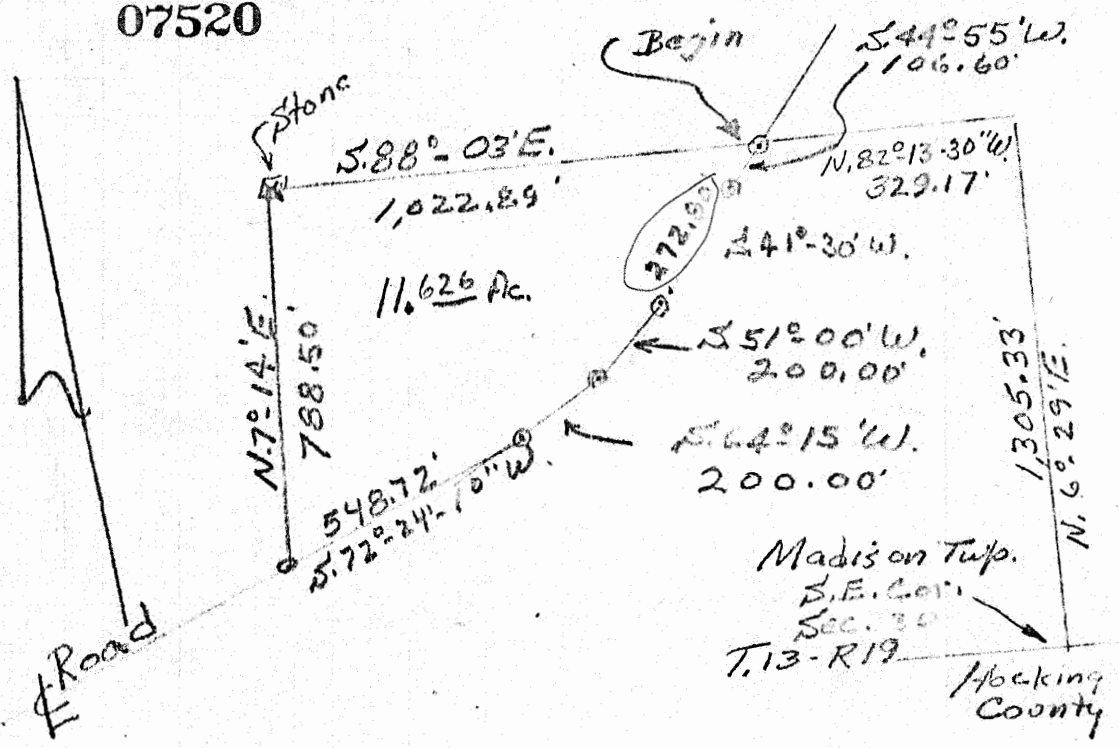 07520
Begin
S.44°55'W.
106.60'
Stone
S.88°-03'E.
1,022.89'
N.82°-13-30"W.
329.17'
272.90
S.41°-30'W.
11.626 Ac.
S.51°00'W.
200.00'
N.7°-14'E.
788.50'
S.64°15'W.
200.00'
548.72'
S.72°-24'-10"W.
1,305.33'
N.6°-29'E.
Madison Twp.
S.E. Cor.
Sec. 30
T.13-R19
Hocking
County
℄ Road